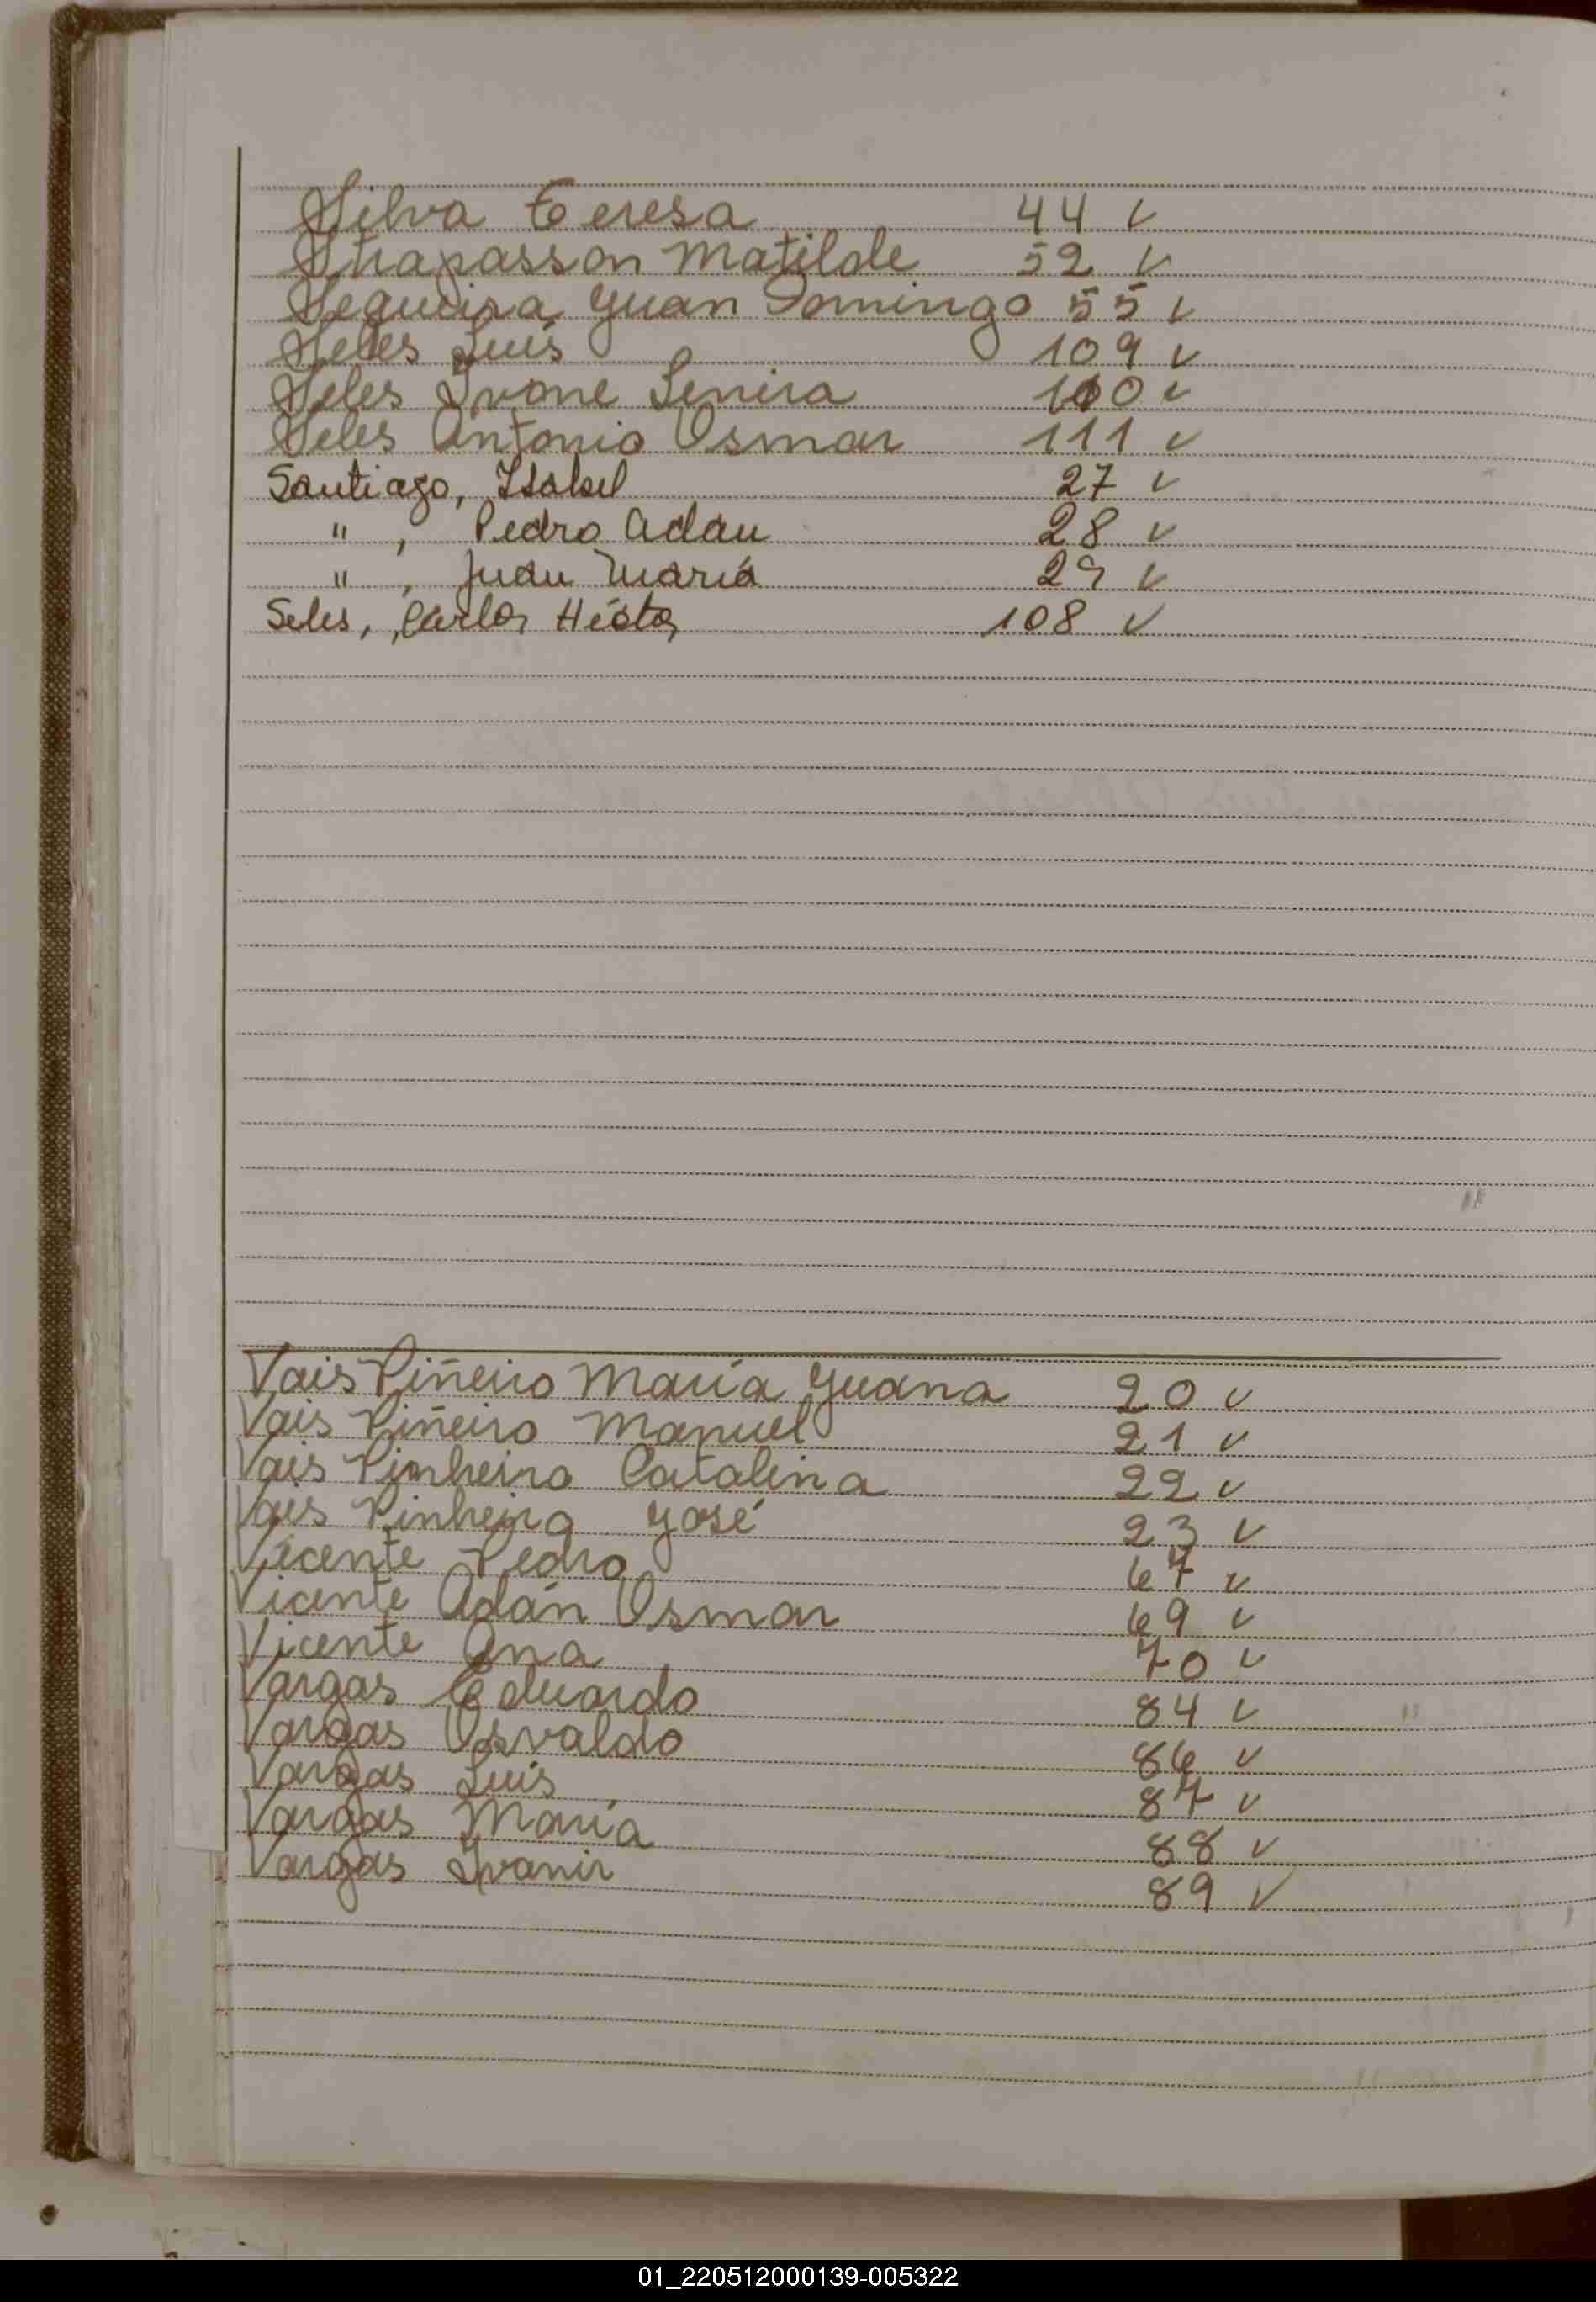 Silva Teresa 44 v
Strapasson Matilde 52 v
Sequeira Juan Domingo 55 v
Seles Luis 109 v
Seles Ivone Lenira 110 v
Seles Antonio Osmar 111 v
Santiago, Isabel 27 v
" , Pedro Adán 28 v
" , Juan María 29 v
Seles, Carlos Héctor 108 v
Vais Piñeiro María Juana 20 v
Vais Piñeiro Manuel 21 v
Vais Pinheiro Catalina 22 v
Vais Pinheiro José 23 v
Vicente Pedro 67 v
Vicente Adán Osmar 69 v
Vicente Ana 70 v
Vargas Eduardo 84 v
Vargas Osvaldo 86 v
Vargas Luis 87 v
Vargas María 88 v
Vargas Ivanir 89 v
01_220512000139-005322